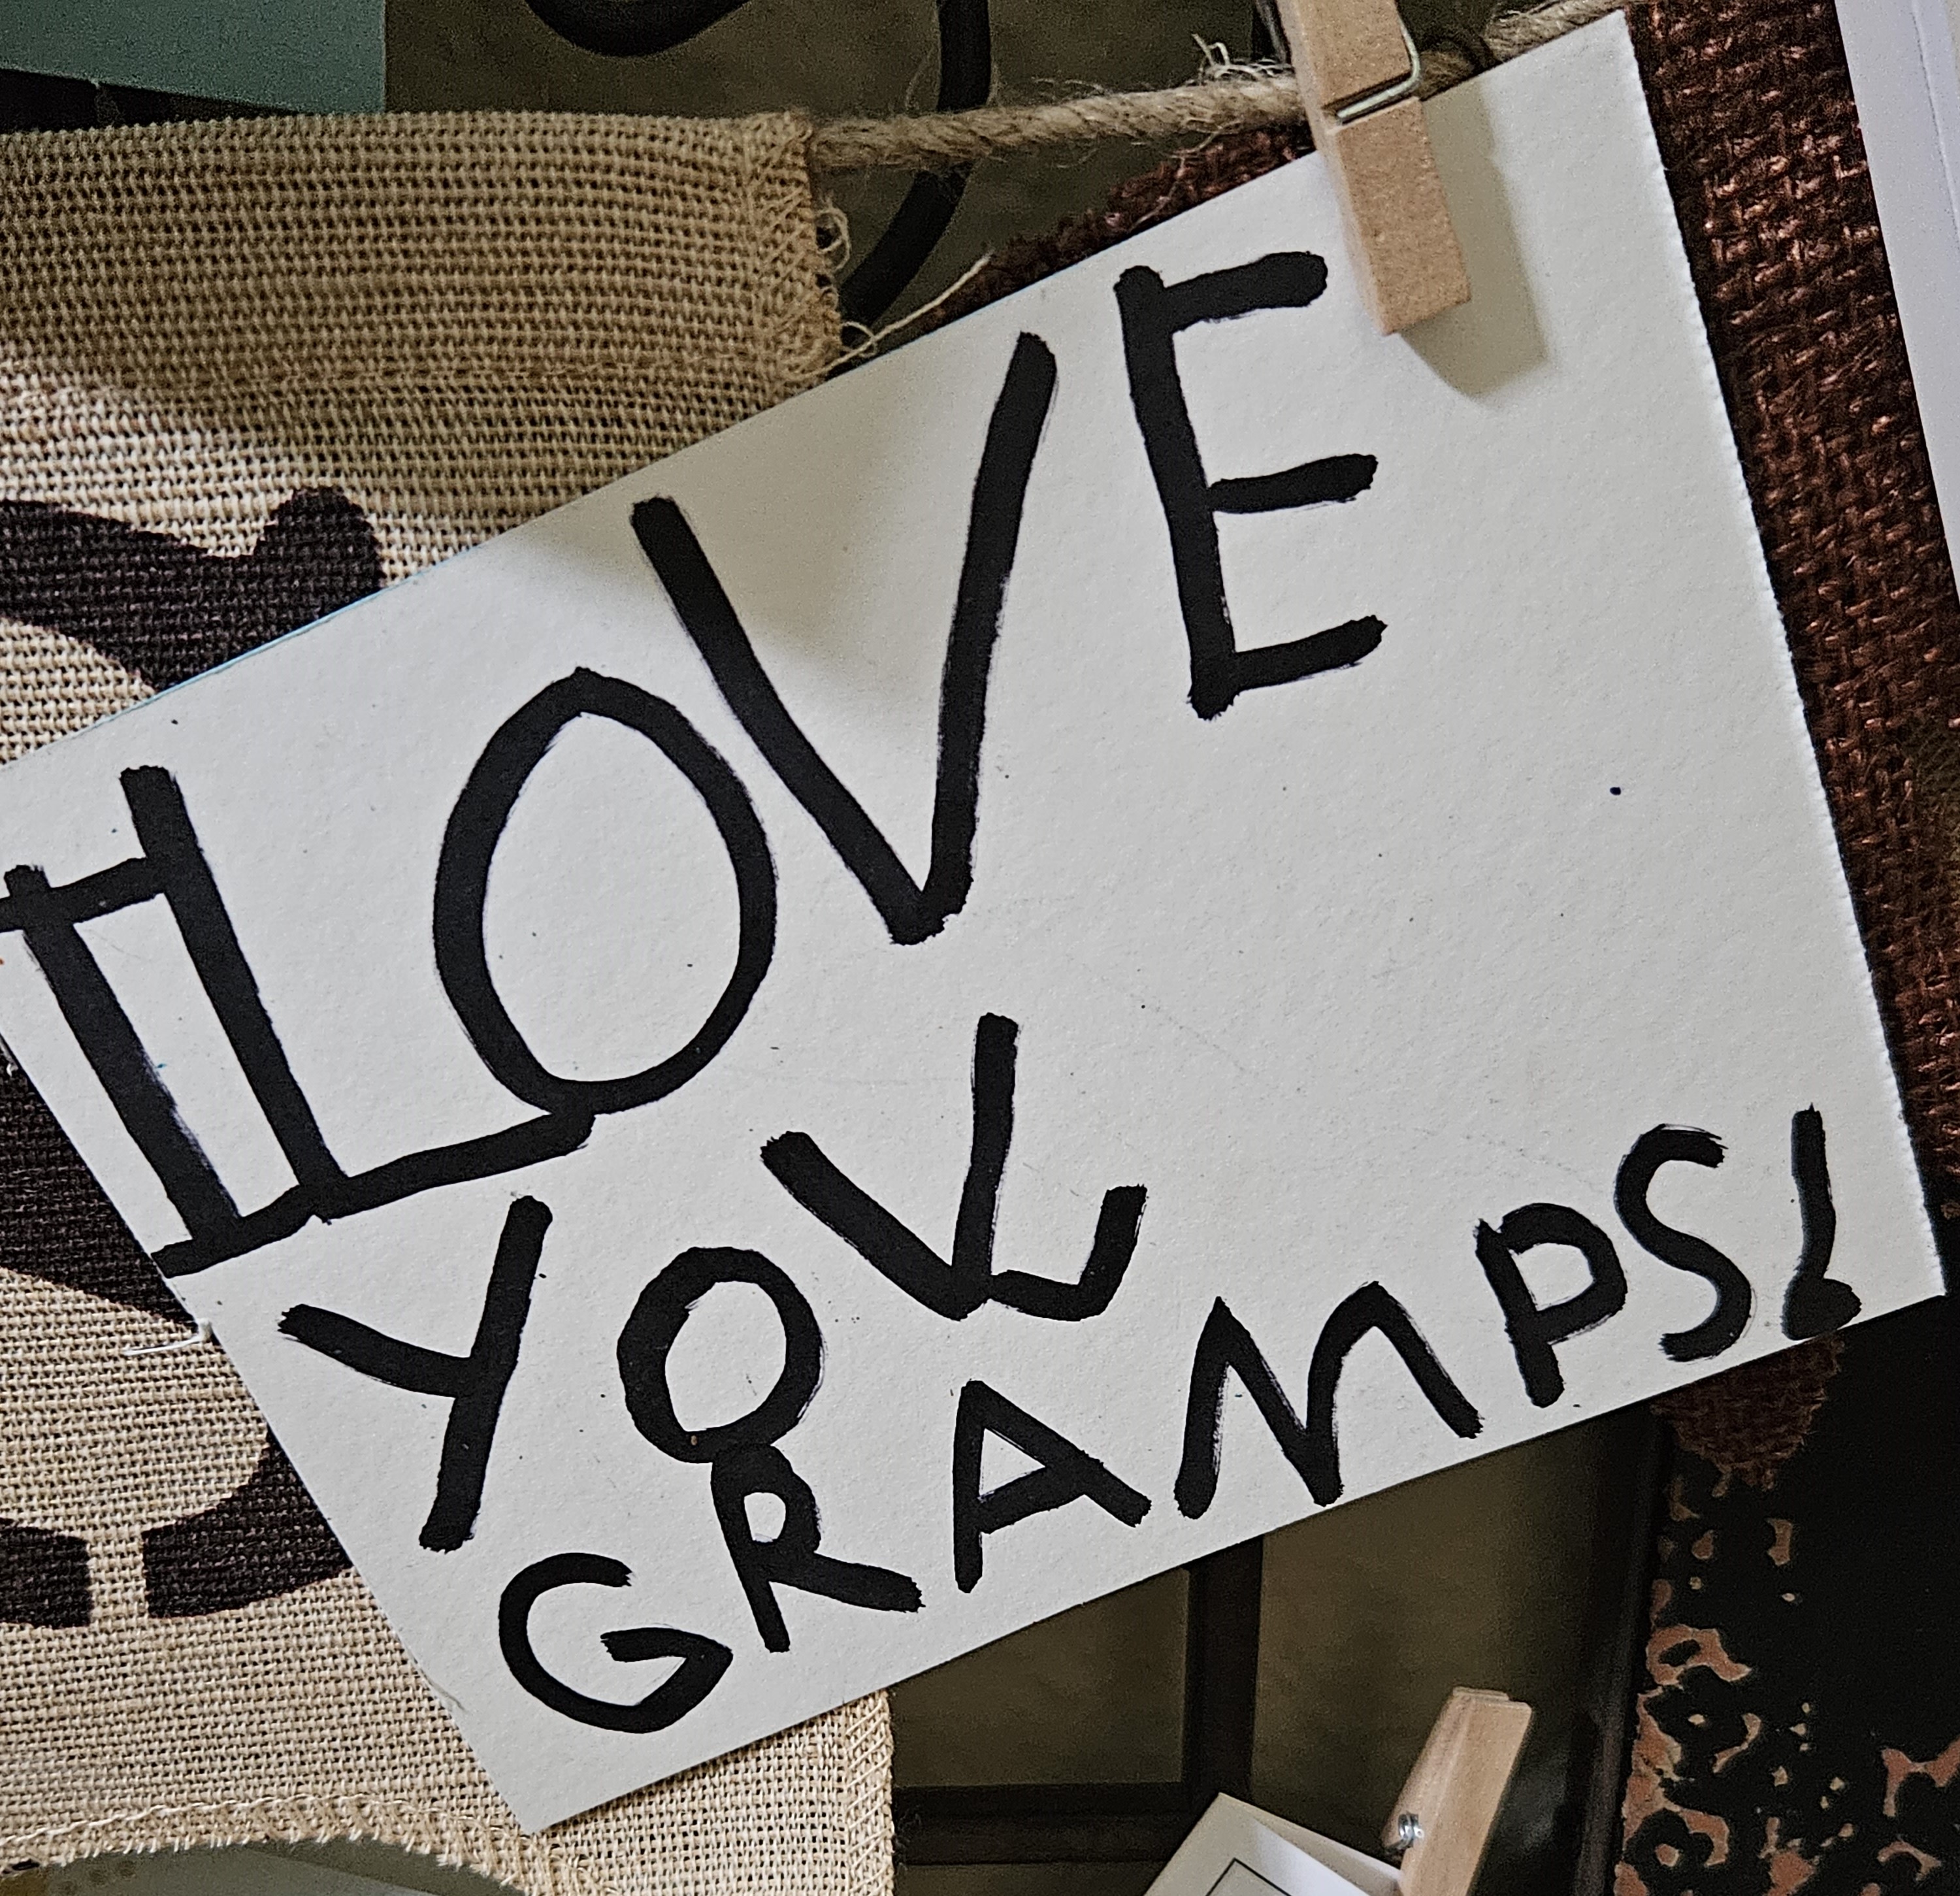 I LOVE
YOU
GRAMPS!